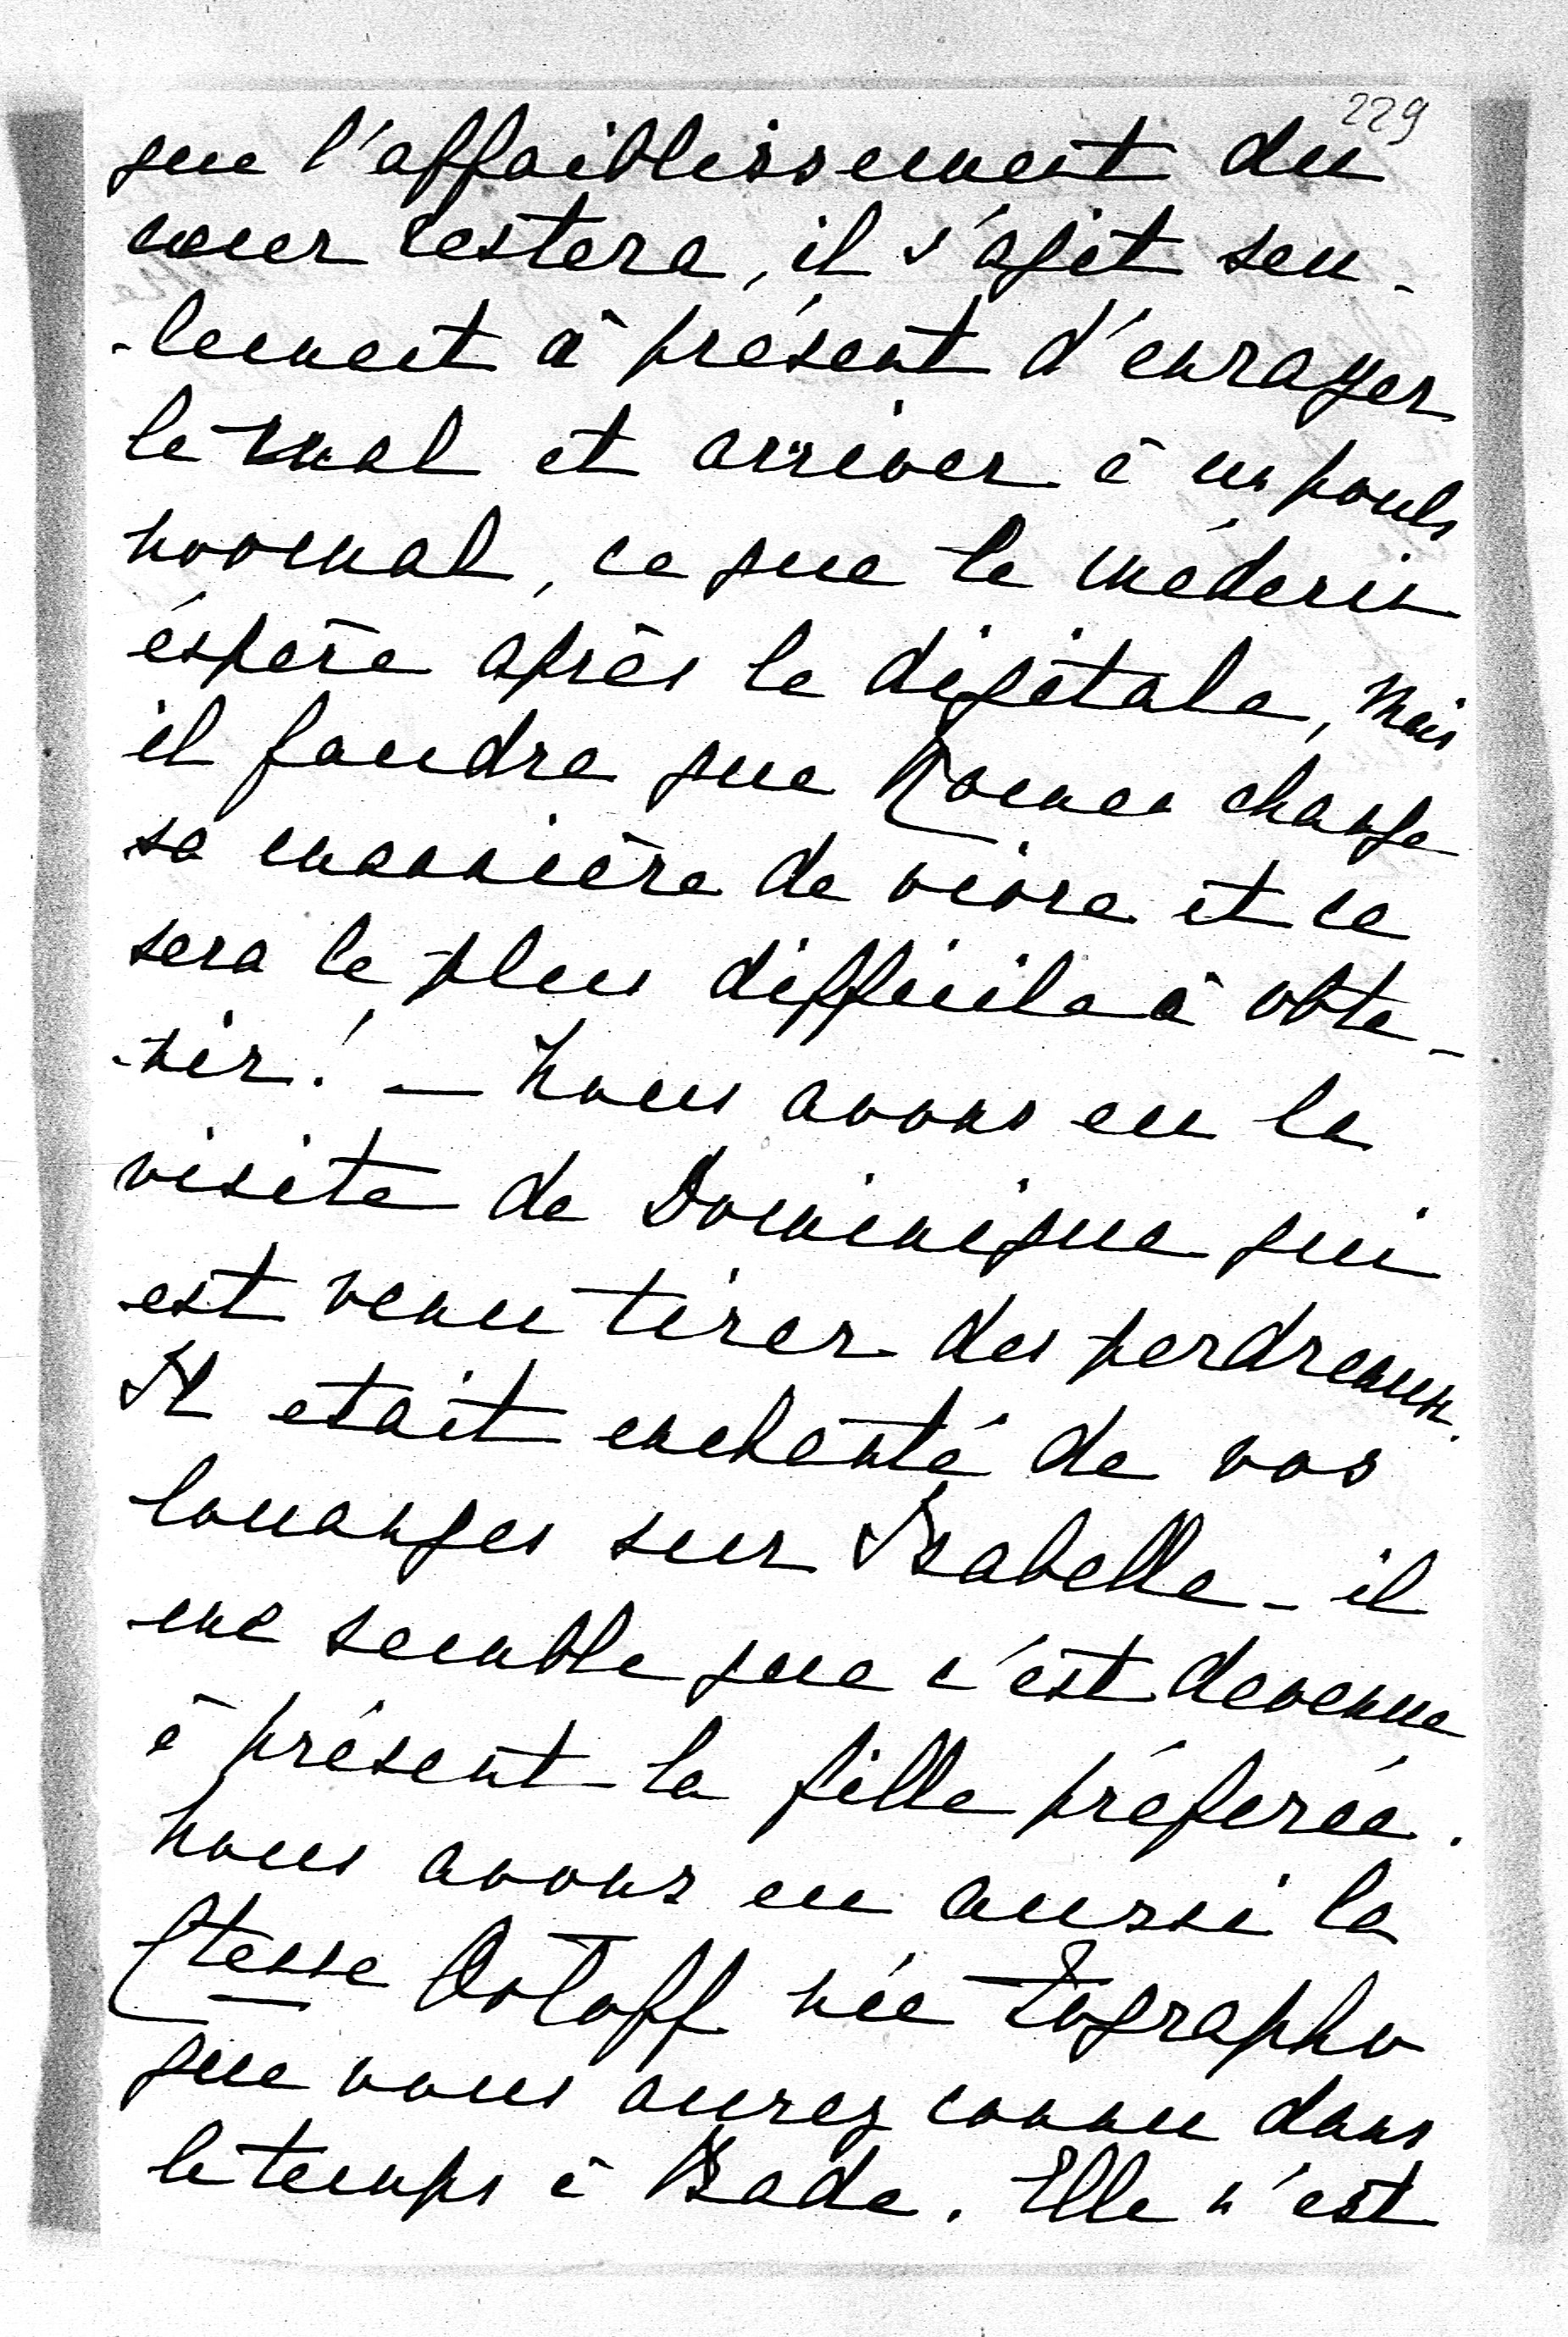 229
que l'affaiblissement du
cœur restera, il s'agit seu-
-lement à présent d'enrayer
le mal et arriver à un pouls
normal, ce que le médecin
éspère après le digitale, mais
il faudra que Roman change
sa mannière de vivre et ce
sera le plus difficile à obte-
-nir! — Nous avons eu la
visite de Dominique qui
est venu tirer des perdreaux.
Il etait enchanté de vos
louanges sur Isabelle - il
me semble que c'est devenue
à présent la fille préferée.
Nous avons eu aussi la
Ctesse Orloff née Zographo
que vous aurez connu dans
le temps à Bade. Elle n'est